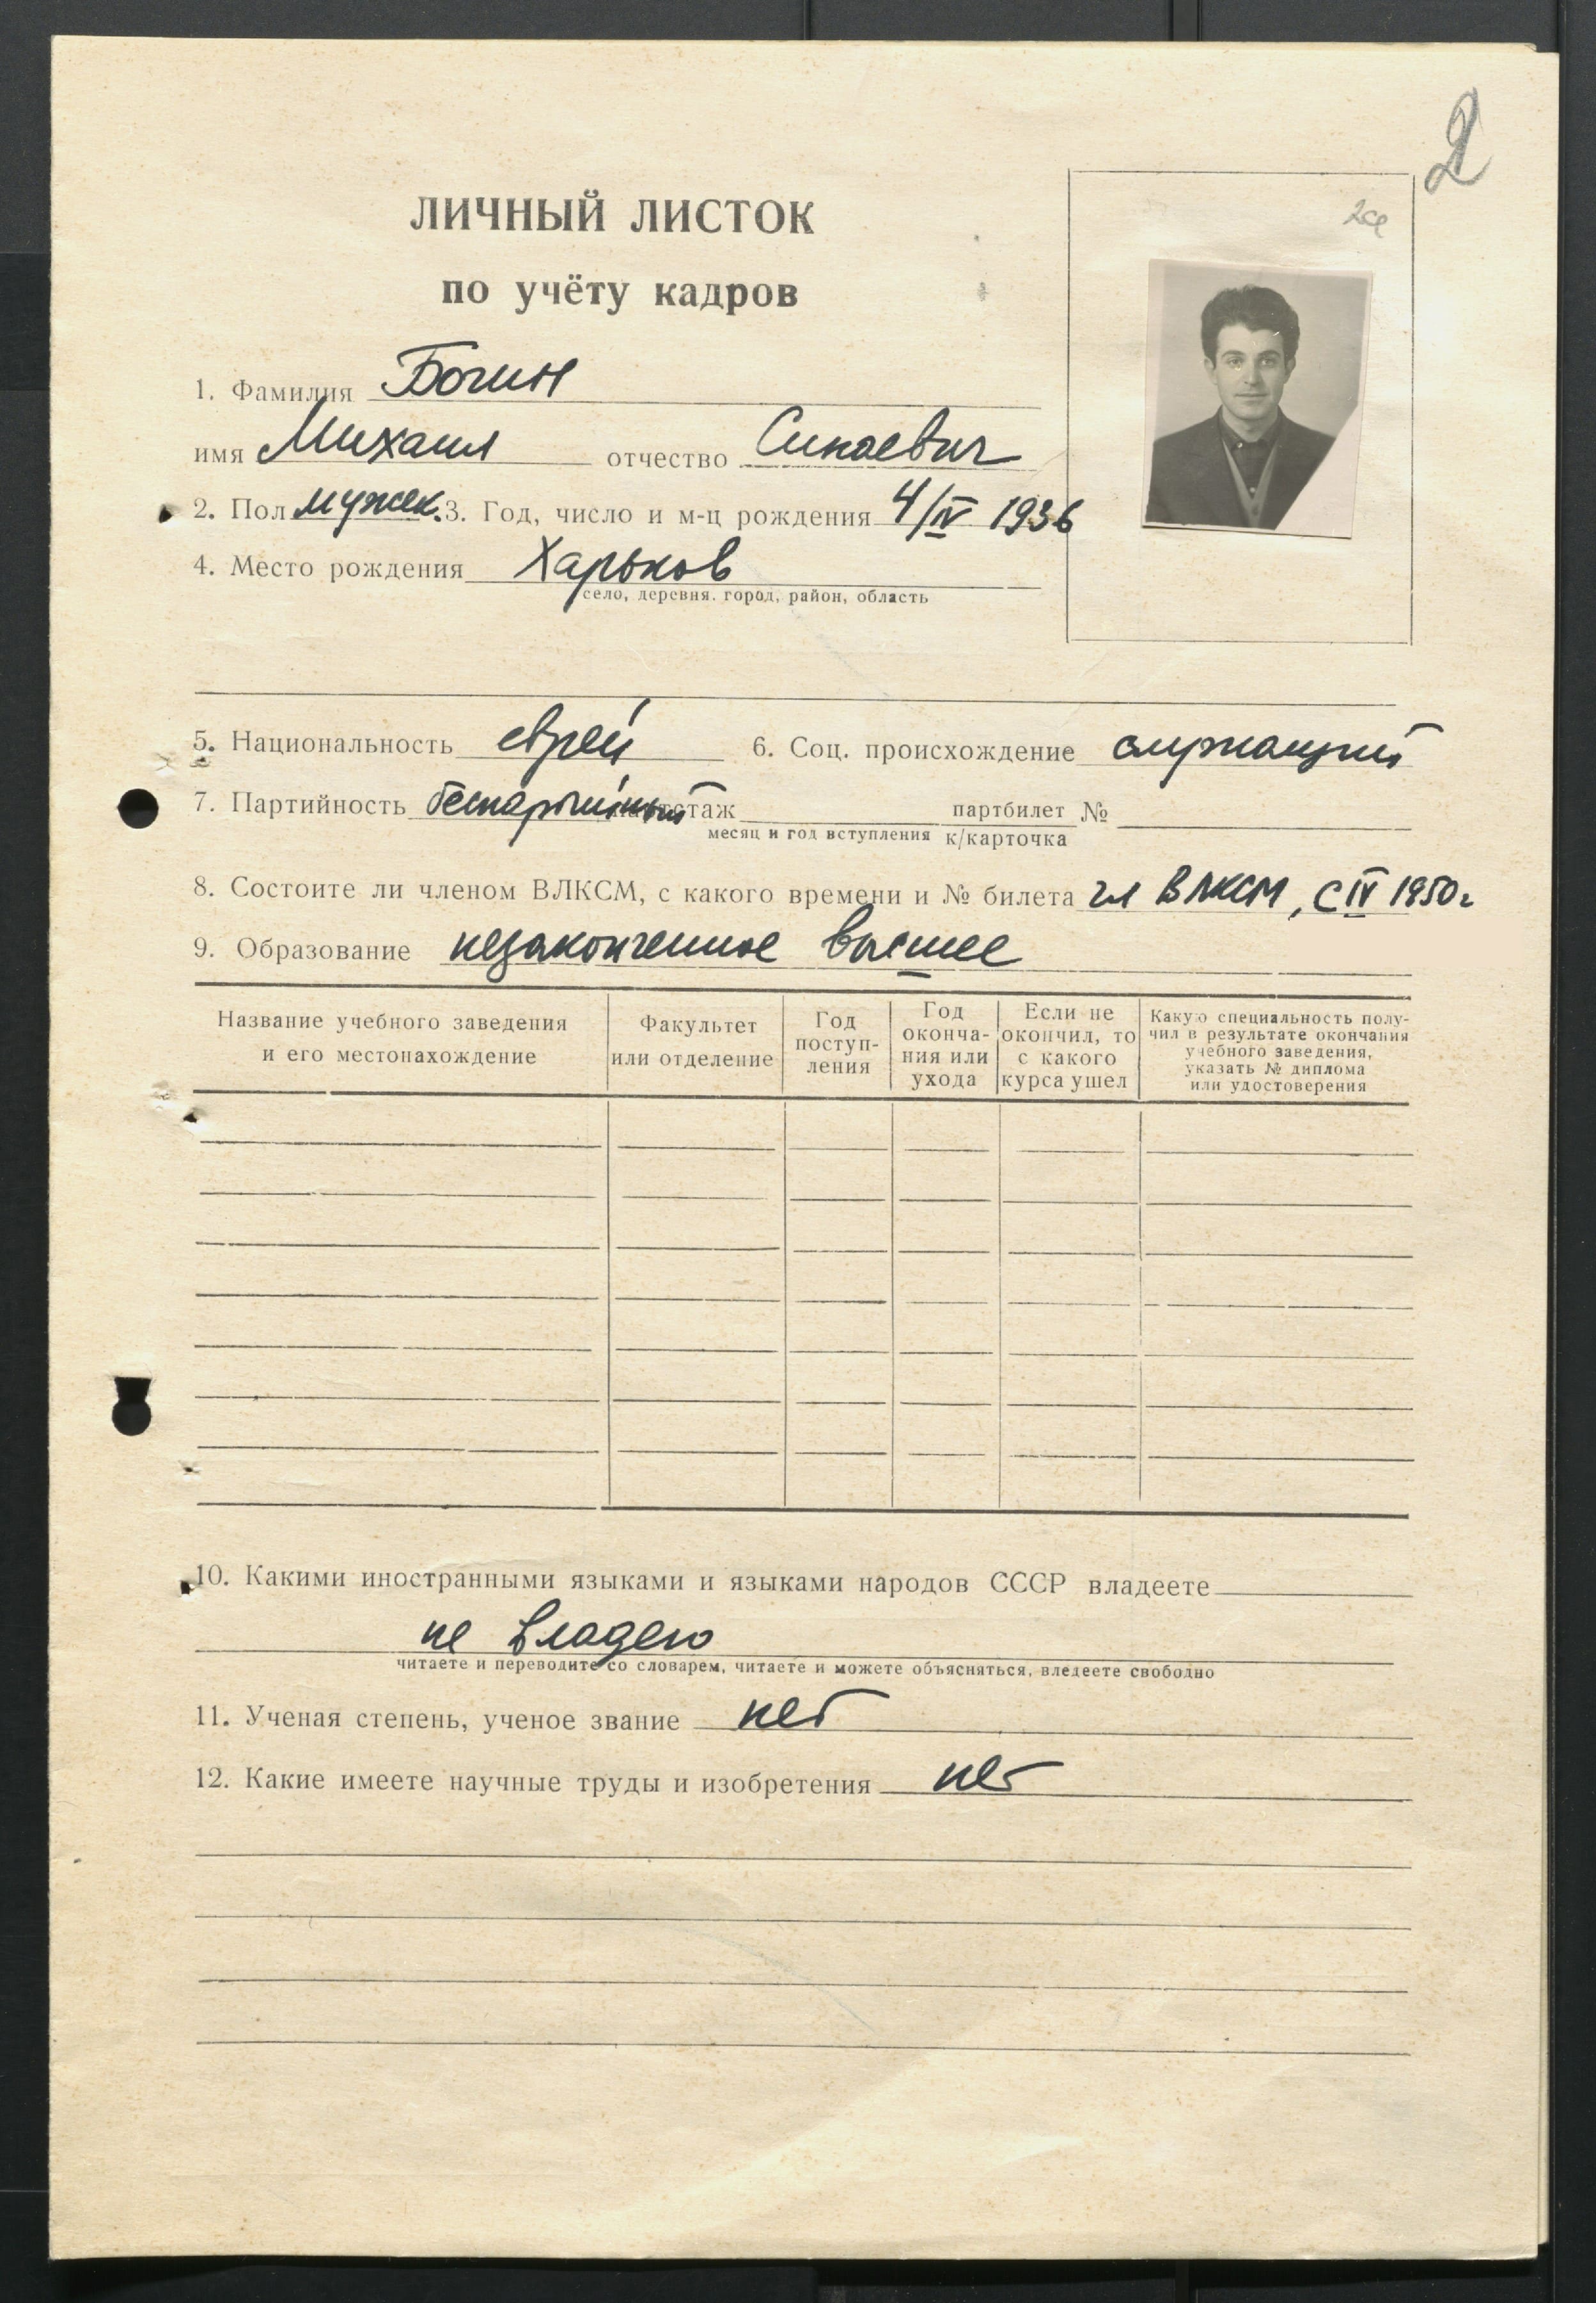 2
2а
ЛИЧНЫЙ ЛИСТОК
по учёту кадров
1. Фамилия Богин
имя Михаил отчество Синаевич
2. Пол мужск. 3. Год, число и м-ц рождения 4/IV 1936
4. Место рождения Харьков
село, деревня, город, район, область
5. Национальность еврей 6. Соц. происхождение служащий
7. Партийность беспартийный партстаж партбилет №
месяц и год вступления к/карточка
8. Состоите ли членом ВЛКСМ, с какого времени и № билета чл ВЛКСМ, с IV 1950г
9. Образование незаконченное высшее
Название учебного заведения и его местонахождение
Факультет или отделение
Год поступ-ления
Год оконча-ния или ухода
Если не окончил, то с какого курса ушел
Какую специальность полу-чил в результате окончания учебного заведения, указать № диплома или удостоверения
10. Какими иностранными языками и языками народов СССР владеете
не владею
читаете и переводите со словарем, читаете и можете объясняться, вледеете свободно
11. Ученая степень, ученое звание нет
12. Какие имеете научные труды и изобретения нет